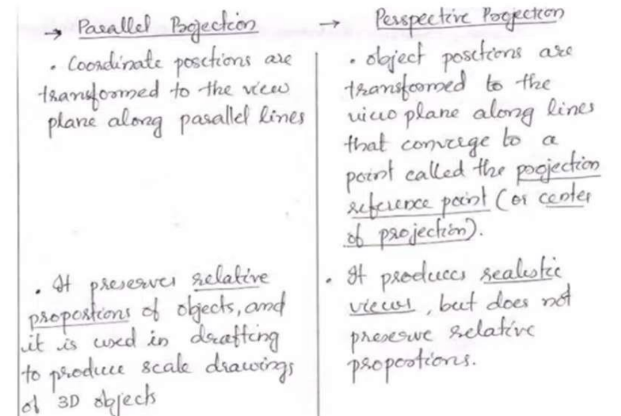 → Parallel Projection
• Coordinate positions are
transformed to the view
plane along parallel lines
• It preserves relative
proportions of objects, and
it is used in drafting
to produce scale drawings
of 3D objects
→ Perspective Projection
• object positions are
transformed to the
view plane along lines
that converge to a
point called the projection
reference point (or center
of projection).
• It produces realistic
views, but does not
preserve relative
proportions.